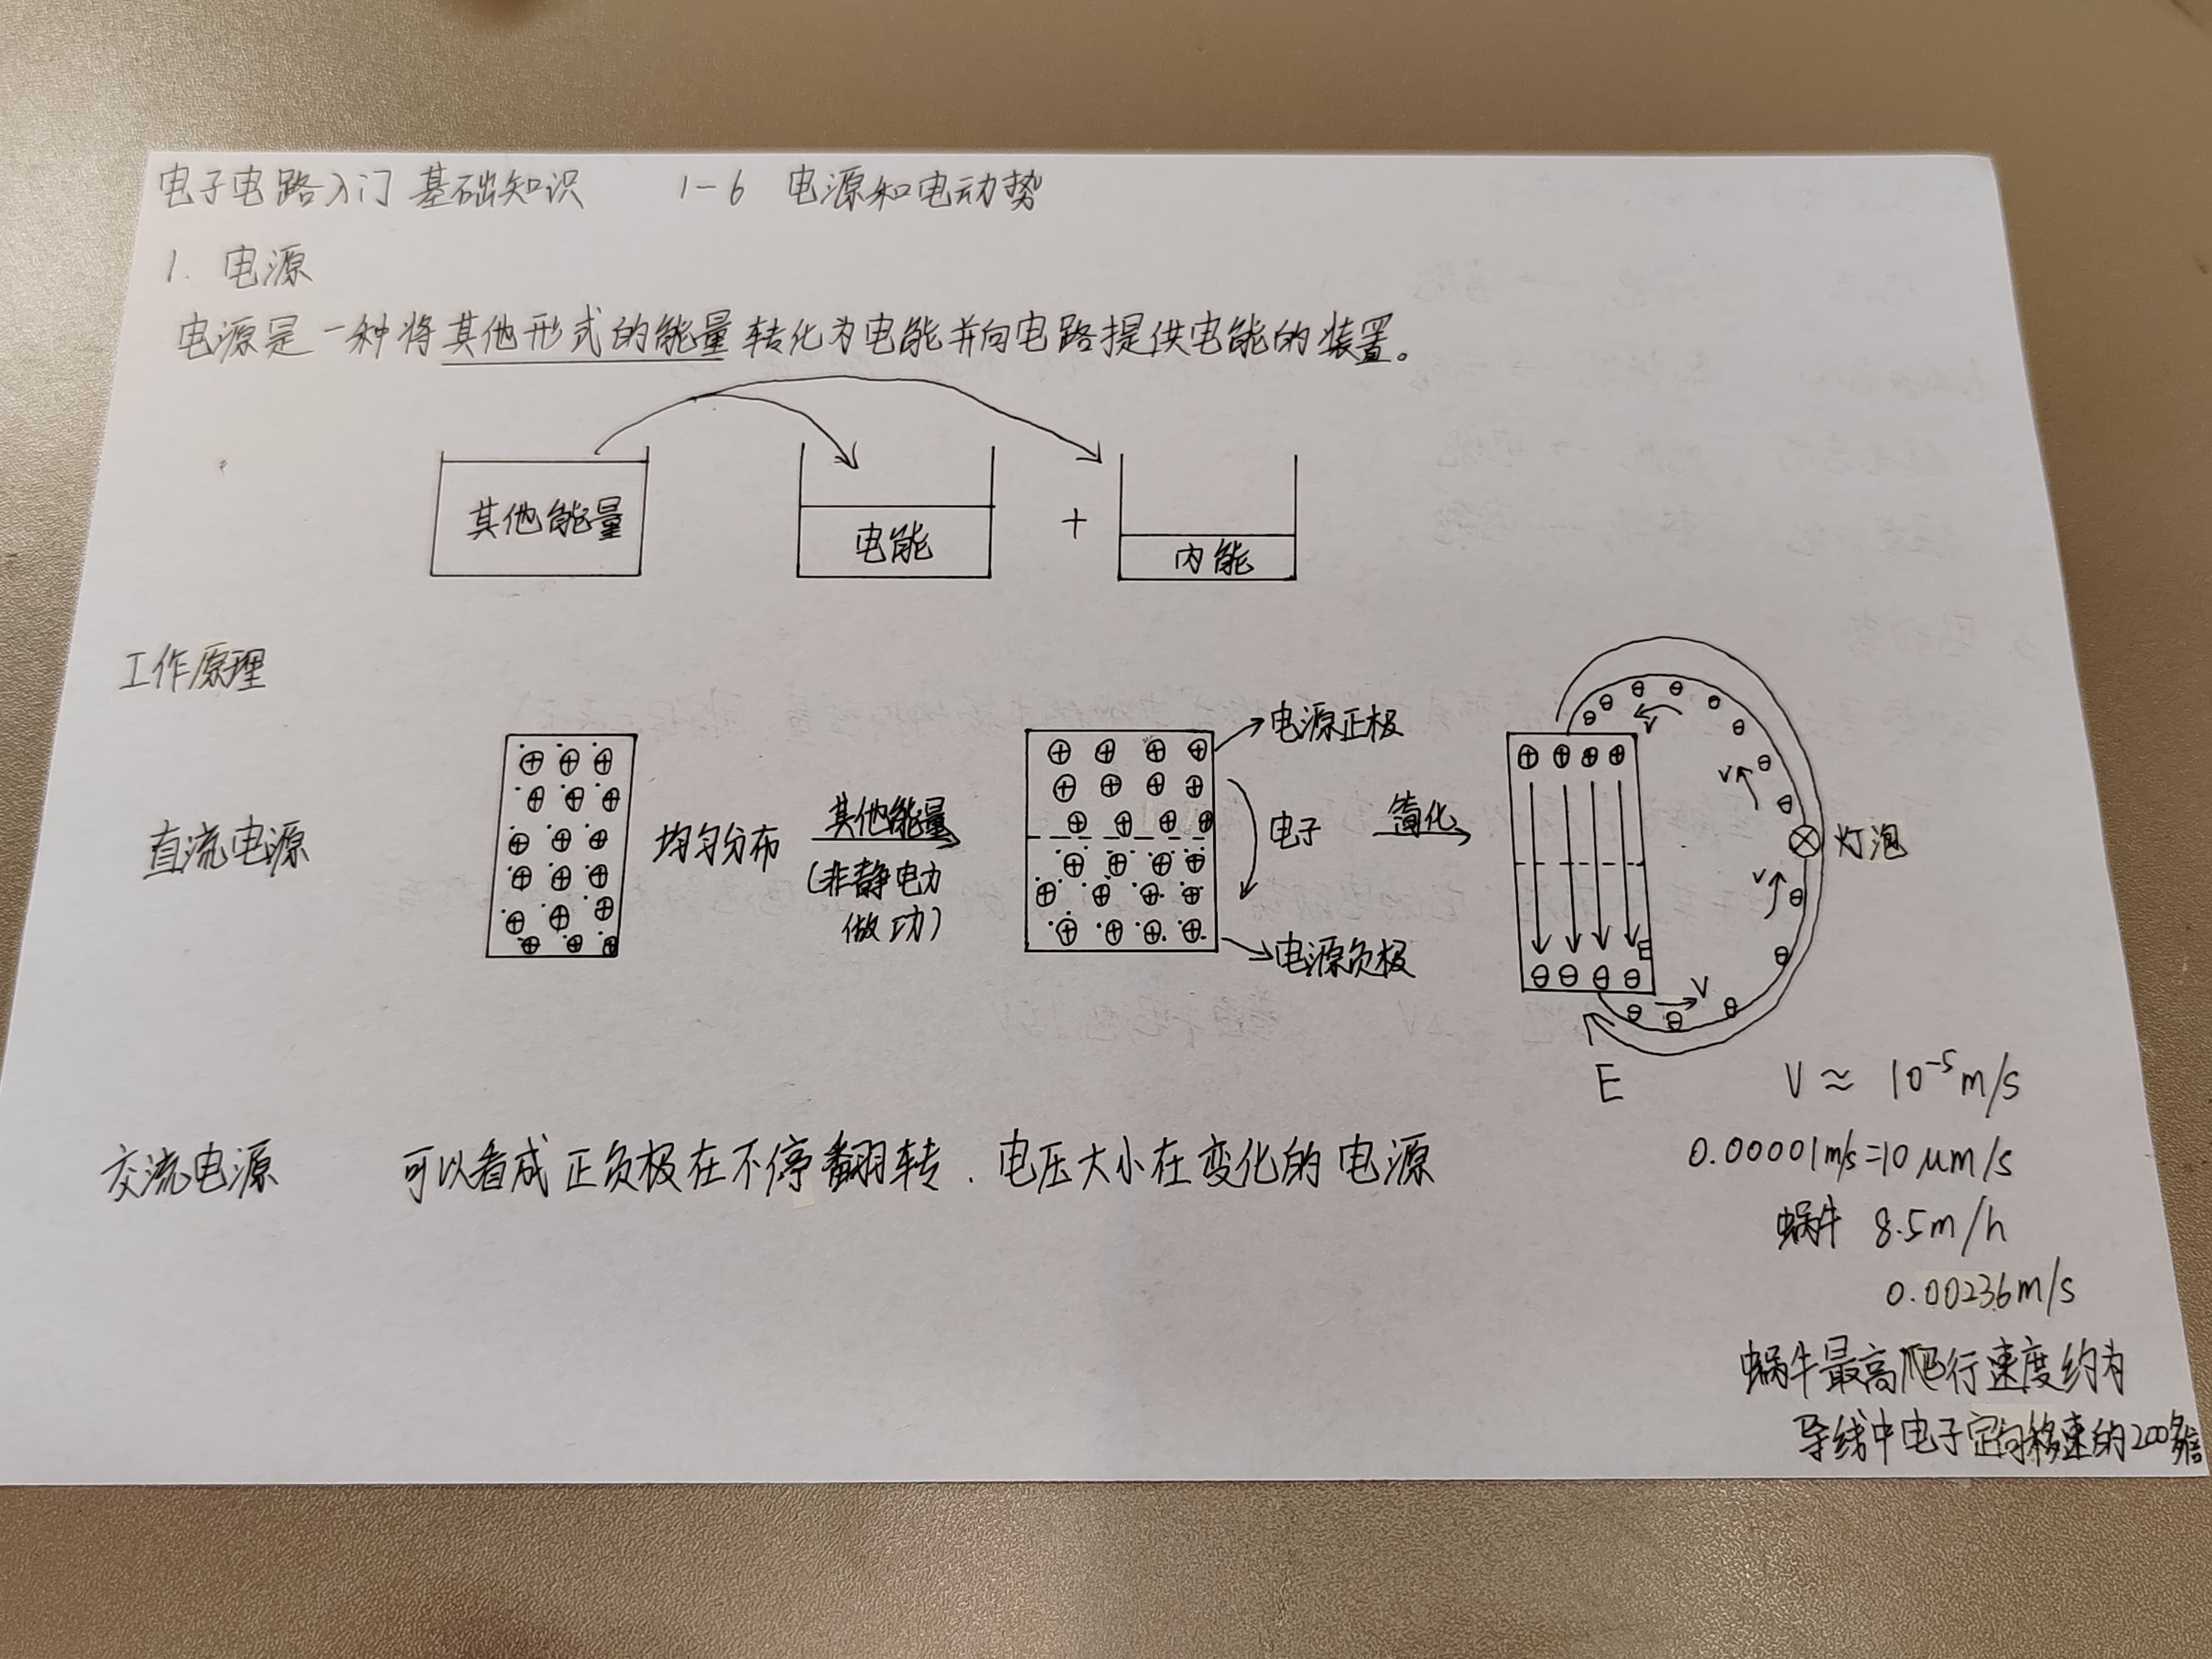 电子电路入门 基础知识 1-6 电源和电动势
1. 电源
电源是一种将其他形式的能量转化为电能并向电路提供电能的装置。
其他能量
电能
+
内能
工作原理
直流电源
均匀分布
其他能量
(非静电力
做功)
电源正极
电子
电源负极
简化
V
V
灯泡
V
E
V
E
V≈10⁻⁵m/s
0.00001m/s=10μm/s
蜗牛 8.5m/h
0.00236m/s
蜗牛最高爬行速度约为
导线中电子定向移速的200多倍
交流电源 可以看成正负极在不停翻转.电压大小在变化的电源